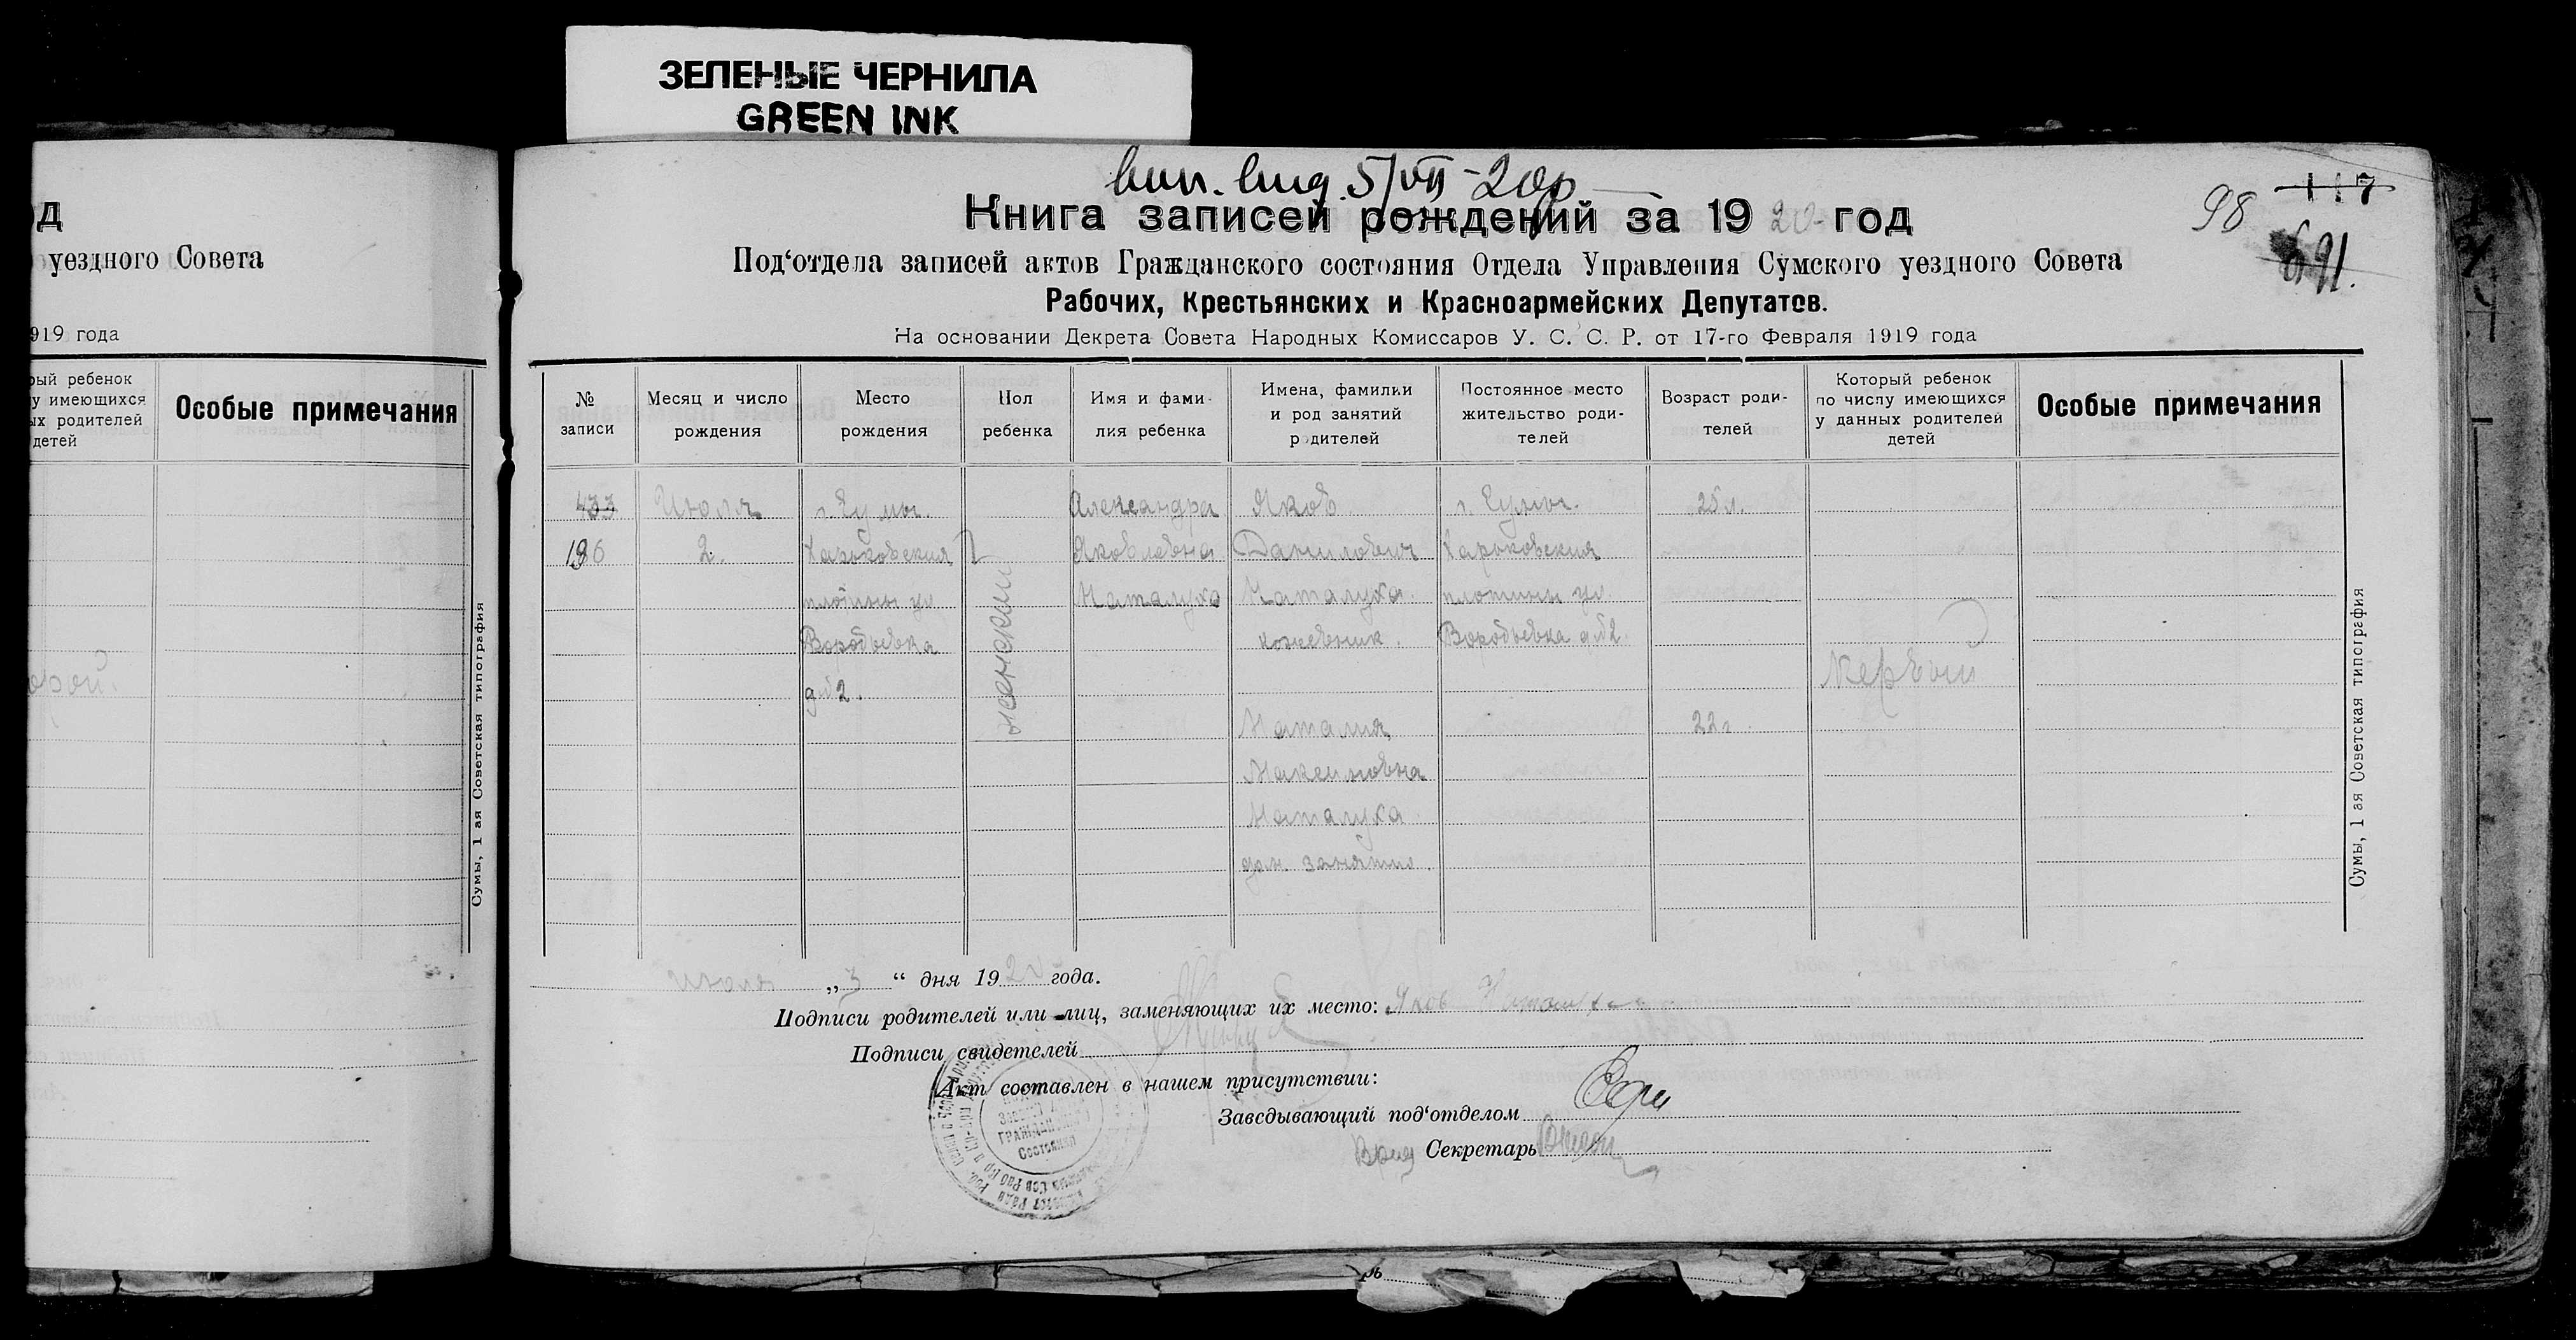 ЗЕЛЕНЫЕ ЧЕРНИЛА
GREEN INK
од
уездного Совета
919 года
рый ребенок
у имеющихся
ых родителей
детей
Особые примечания
орой.
Сумы, 1 ая Советская типография
вып. вид. 5/VII-20р
98 117
691.
Книга записей рождений за 1920 год
Под‘отдела записей актов Гражданского состояния Отдела Управления Сумского уездного Совета
Рабочих, Крестьянских и Красноармейских Депутатов.
На основании Декрета Совета Народных Комиссаров У. С. С. Р. от 17-го Февраля 1919 года
№ записи
Месяц и число рождения
Место рождения
Пол ребенка
Имя и фамилия ребенка
Имена, фамилии и род занятий родителей
Постоянное место жительство родителей
Возраст родителей
Который ребенок по числу имеющихся у данных родителей детей
Особые примечания
433 Июля г. Сумы. Александра Яков г. Сумы. 25 л.
196 2. Харьковския Яковлевна Данилович Харьковския
плотины ул Наталуха Наталуха плотины ул.
Воробьевка кожевник. Воробьевка д№2.
д№2.
женский
Первый
Наталия 22 г.
Максимовна
Наталуха
дом. занятия.
Июля „3“ дня 1920 года.
Подписи родителей или лиц, заменяющих их место: Яков Наталуха
Подписи свидетелей
Акт составлен в нашем присутствии:
Заведывающий под‘отделом
Врид Секретарь
Гражданского
Состояния
Сумы, 1 ая Советская типография